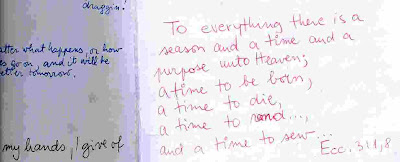 atter what happens, or how
to go on, and it will be
etter tomorrow.
my hands, I give of
To everything there is a
season and a time and a
purpose unto Heaven;
a time to be born;
a time to die,
a time to rend...,
and a time to sew...
Ecc. 3:1,8.